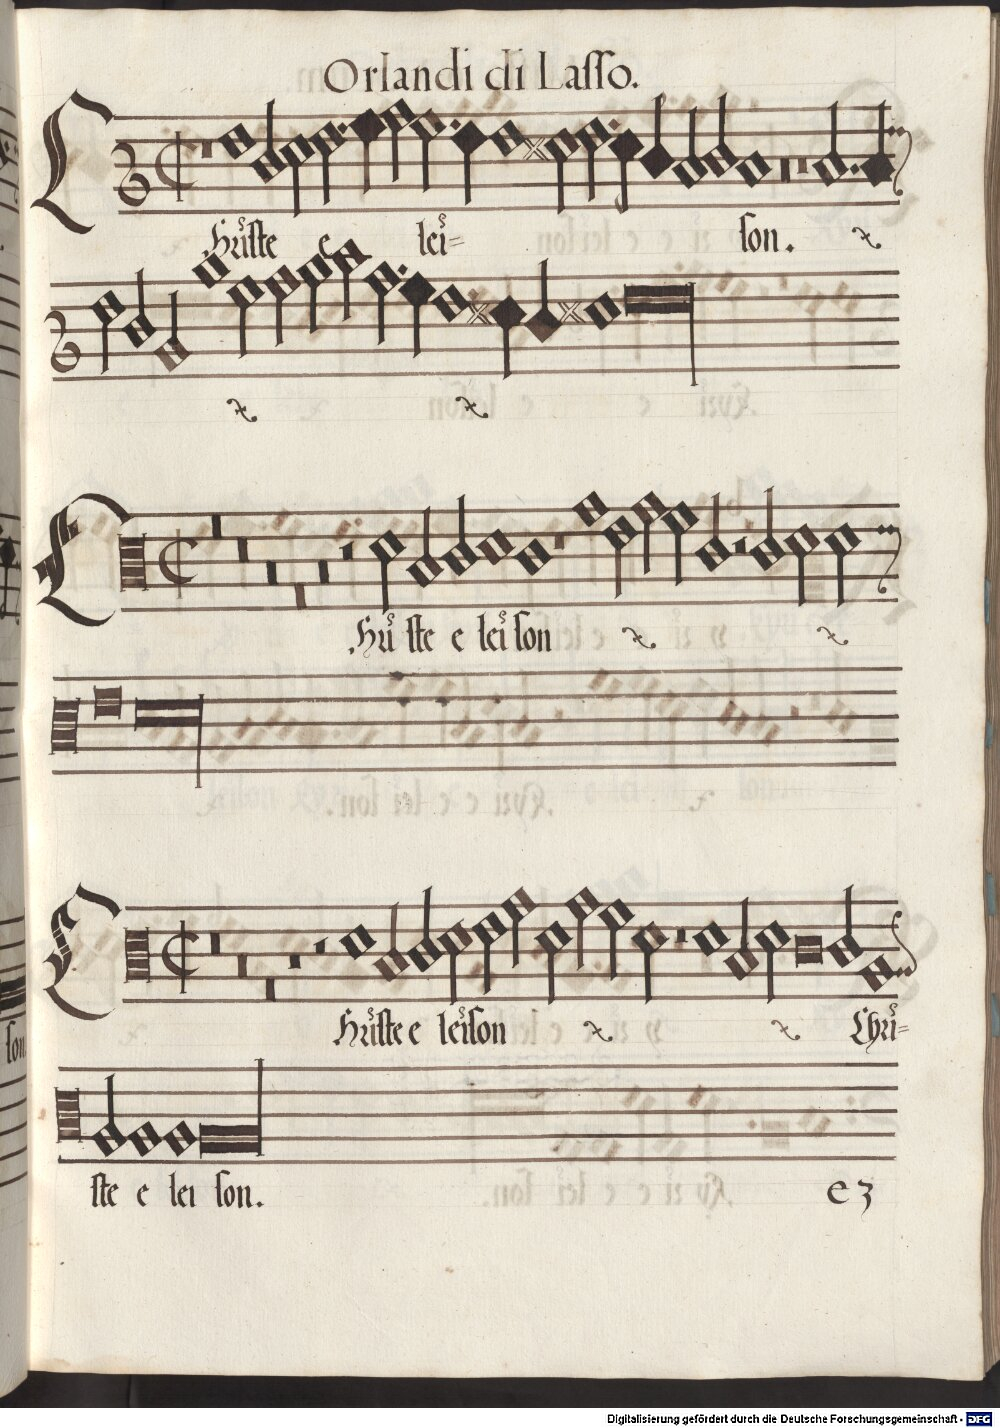 Orlandi di Lasso.
Christe e lei= son.
Christe e leison
Christe e leison Chri=
ste e lei son.
e3
Digitalisierung gefördert durch die Deutsche Forschungsgemeinschaft - DFG